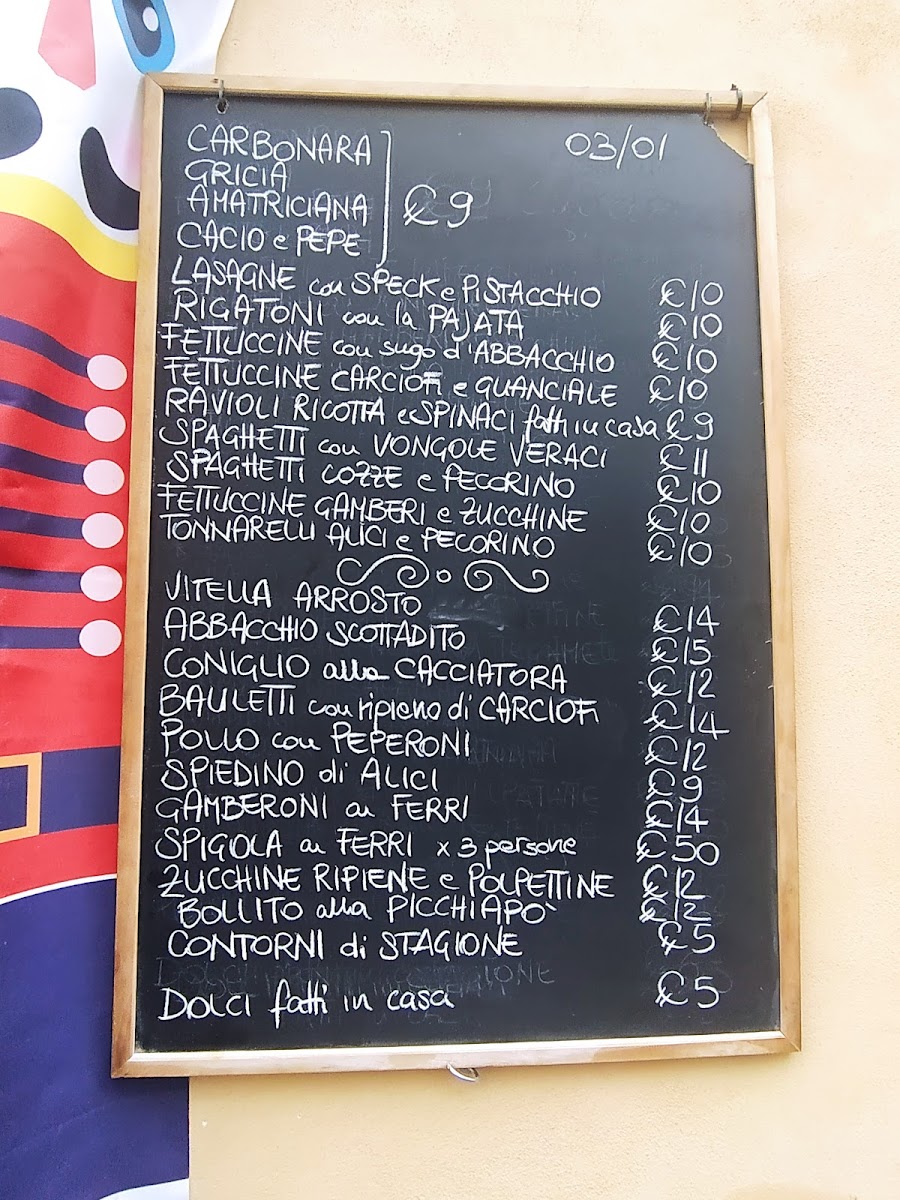 03/01
CARBONARA
GRICIA
AMATRICIANA €9
CACIO e PEPE
LASAGNE con SPECK e PISTACCHIO €10
RIGATONI con la PAJATA €10
FETTUCCINE con sugo d'ABBACCHIO €10
FETTUCCINE CARCIOFI e GUANCIALE €10
RAVIOLI RICOTTA e SPINACI fatti in casa €9
SPAGHETTI con VONGOLE VERACI €11
SPAGHETTI COZZE e PECORINO €10
FETTUCCINE GAMBERI e ZUCCHINE €10
TONNARELLI ALICI e PECORINO €10
VITELLA ARROSTO €14
ABBACCHIO SCOTTADITO €15
CONIGLIO alla CACCIATORA €12
BAULETTI con ripieno di CARCIOFI €14
POLLO con PEPERONI €12
SPIEDINO di ALICI €9
GAMBERONI ai FERRI €14
SPIGOLA ai FERRI x 3 persone €50
ZUCCHINE RIPIENE e POLPETTINE €12
BOLLITO alla PICCHIAPÒ €12
CONTORNI di STAGIONE €5
DOLCI fatti in casa €5